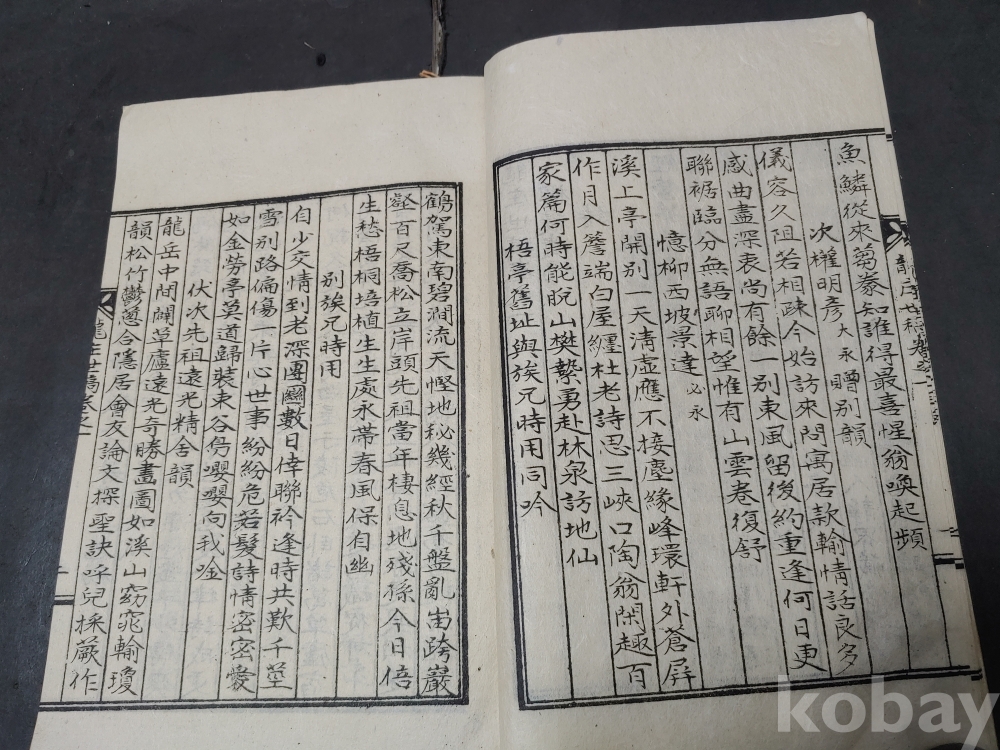 魚鱗從來芻豢知誰得最喜惺翁喚起頻
次權明彦大永贈別韻
儀容久阻若相疎今始訪來問寓居款輸情話良多
感曲盡深衷尚有餘一別東風留後約重逢何日更
聯裾臨分無語聊相望惟有山雲卷復舒
憶柳西坡景達必永
溪上亭開別一天清虛應不接塵緣峰環軒外蒼屛
作月入簷端白屋纏杜老詩思三峽口陶翁閑趣百
家篇何時能脫山樊縶勇赴林泉訪地仙
梧亭舊址與族兄時用同吟
鶴駕東南碧澗流天慳地秘幾經秋千盤亂岫跨巖
壑百尺喬松立岸頭先祖當年棲息地殘孫今日倍
生愁梧桐培植生生處永帶春風保自幽
別族兄時用
自少交情到老深團圞數日倖聯衿逢時共歎千莖
雪別路偏傷一片心世事紛紛危若髮詩情密密愛
如金勞亭莫道歸裝束谷鳥嚶嚶向我唫
伏次先祖遠光精舍韻
龍岳中間闢草廬遠光奇勝畫圖如溪山窈窕輸瓊
韻松竹鬱葱合隱居會友論文探聖訣呼兒採蕨作